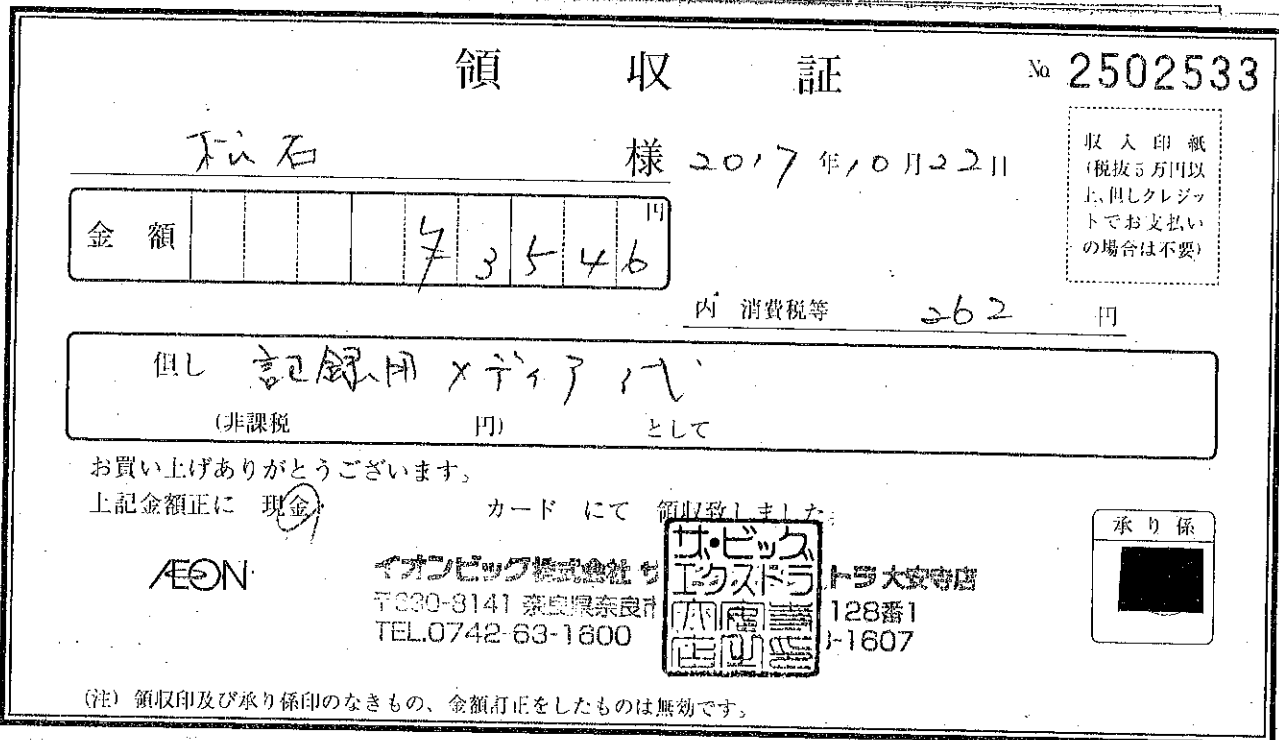 領収証 No. 2502533
松石 様 2017年10月22日
収入印紙
(税抜5万円以
上、但しクレジッ
トでお支払い
の場合は不要)
金額 ¥3546円
内 消費税等 262 円
但し 記録用メディア代
(非課税 円) として
お買い上げありがとうございます。
上記金額正に 現金・ カード にて 領収致しました。
承り係
AEON
イオンビッグ株式会社 ザ トラ大安寺店
〒630-8141 奈良県奈良市 128番1
TEL.0742-63-1600 -1607
ザ・ビッグ
エクストラ
(注) 領収印及び承り係印のなきもの、金額訂正をしたものは無効です。